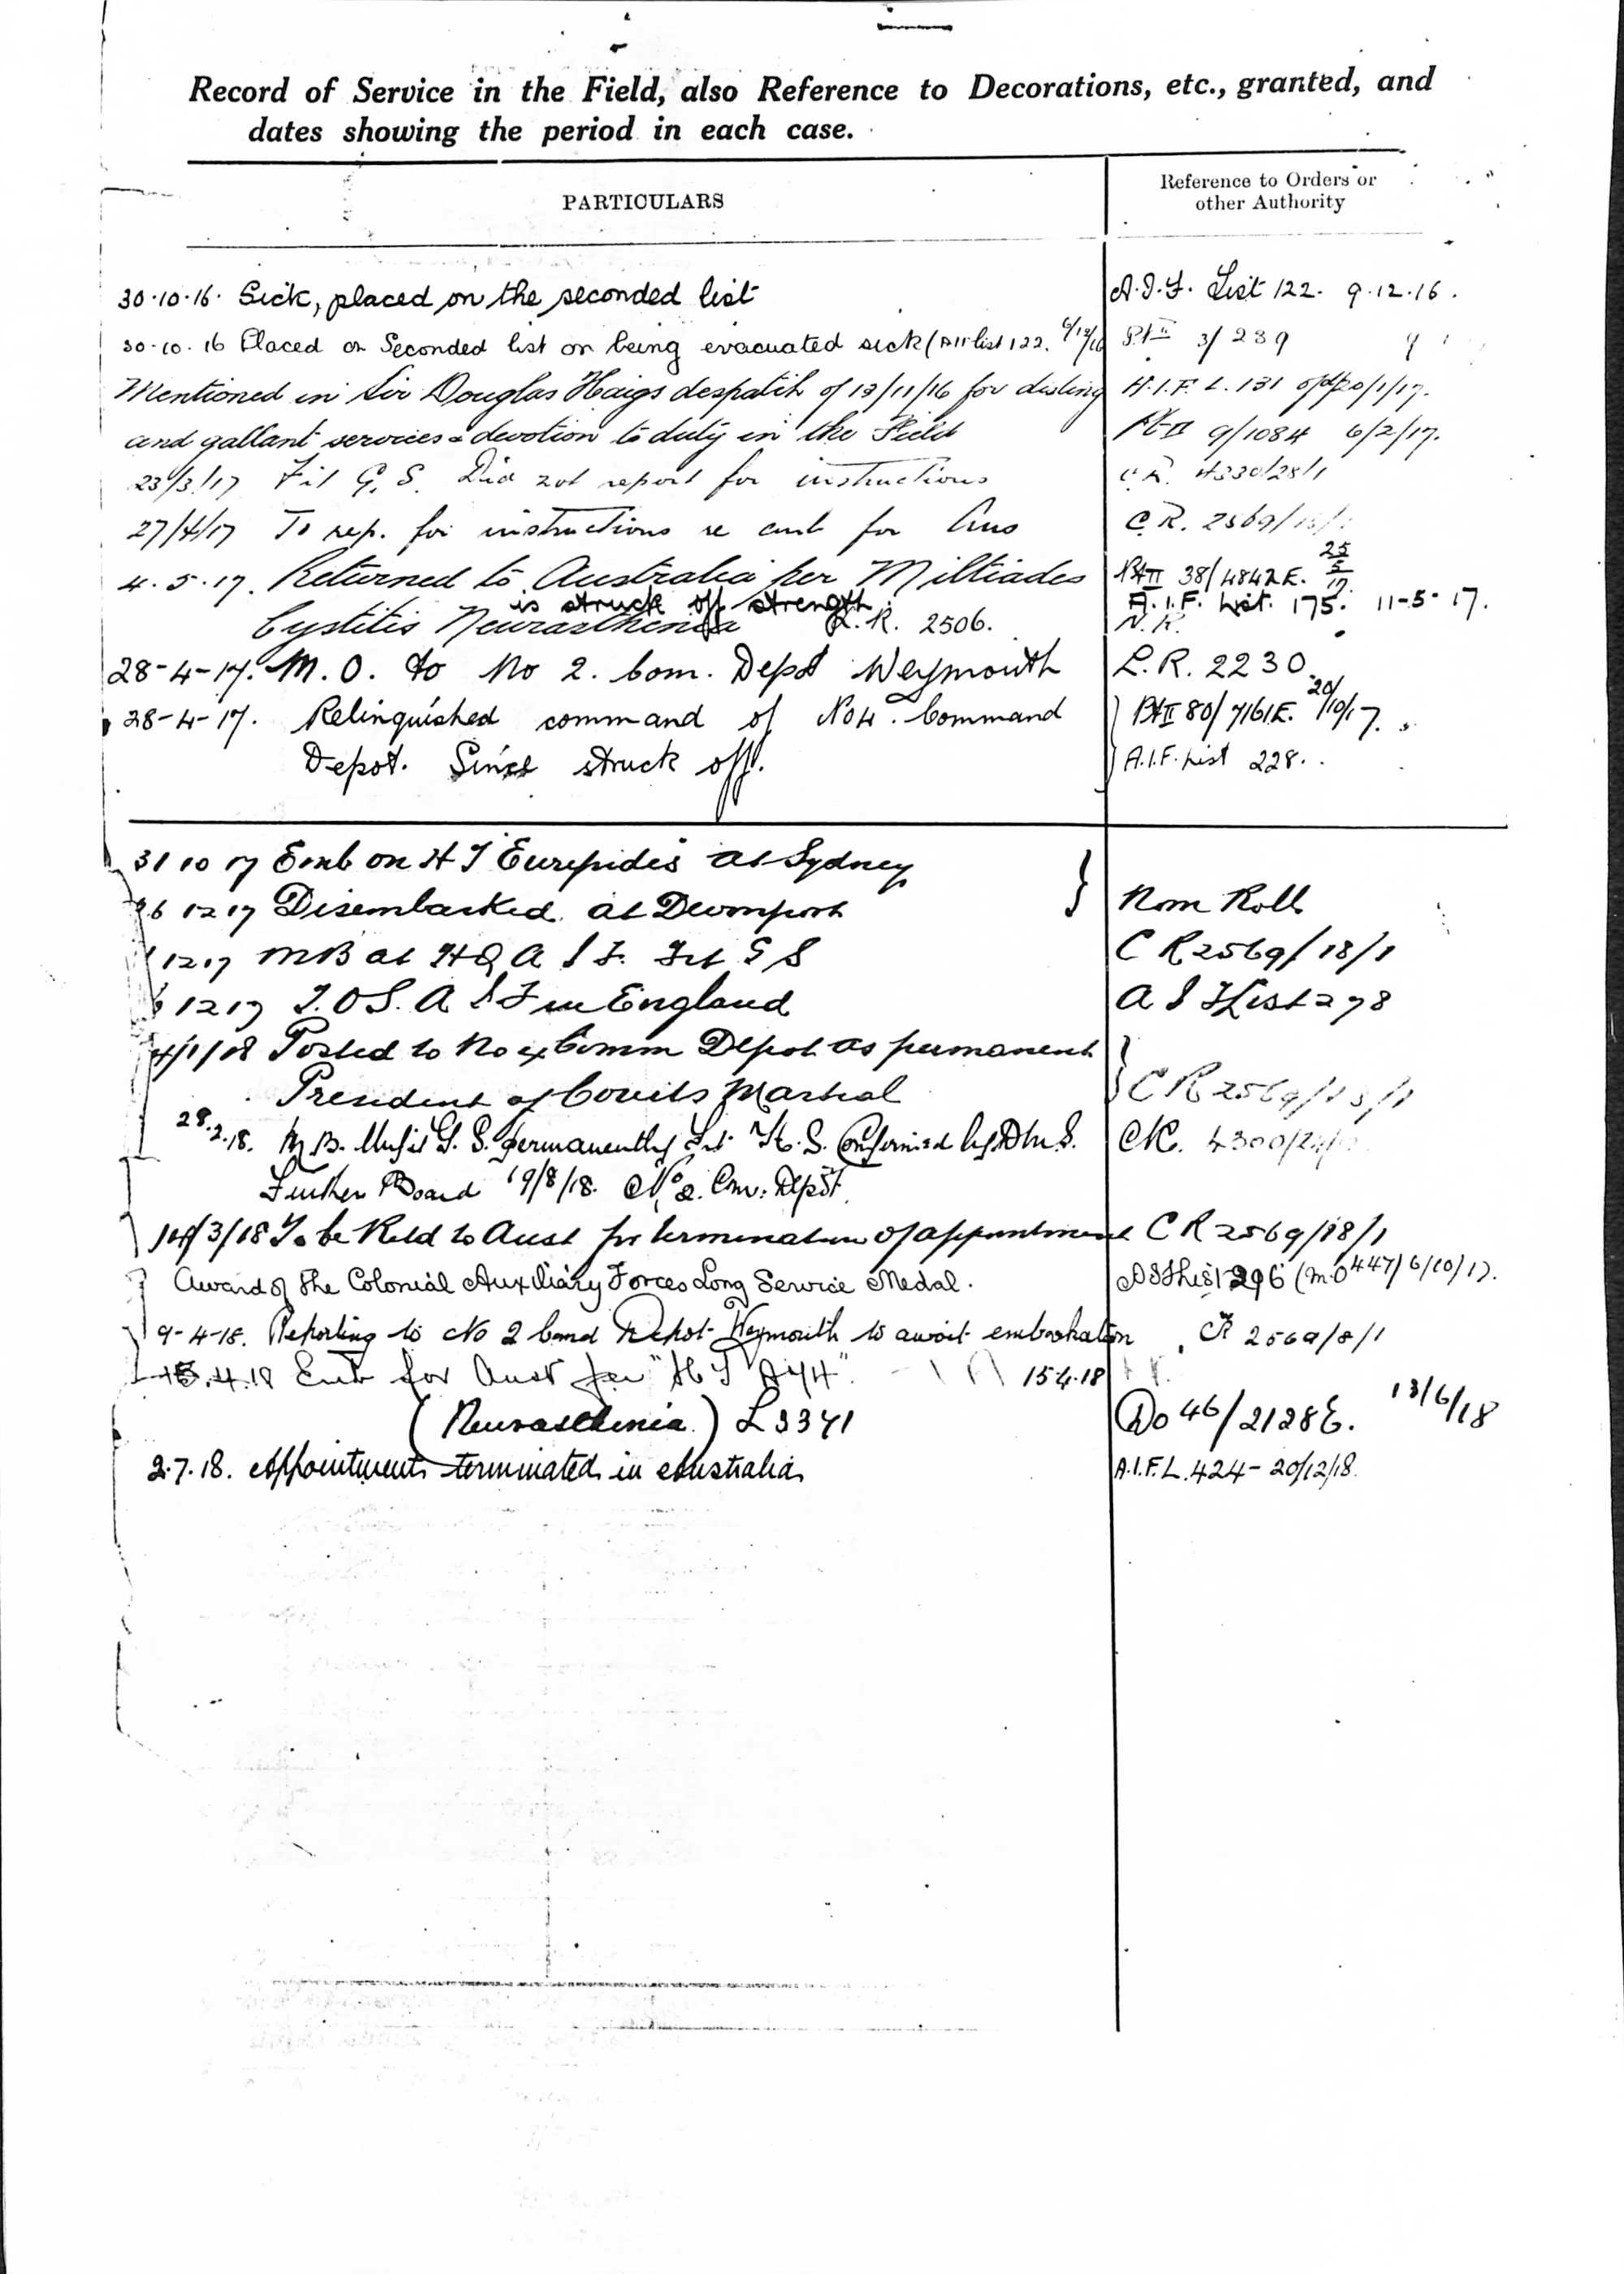 Record of Service in the Field, also Reference to Decorations, etc., granted, and
dates showing the period in each case.
PARTICULARS
Reference to Orders or
other Authority
30.10.16. Sick, placed on the seconded list A.I.F. List 122. 9.12.16.
30.10.16 Placed on Seconded list on being evacuated sick (AIF list 122. Pt II 3/239
Mentioned in Sir Douglas Haigs despatch of 13/11/16 for disting A.I.F. L. 131
and gallant services & devotion to duty in the Field Pt II 9/1084 6/2/17.
23/3/17 Fit G. S. Did not report for instructions C.R. 4330/28/1
27/4/17 To rep. for instructions re emb for Aus C.R. 2569/
4.5.17. Returned to Australia per Miltiades Pt II 38/4842E. 25/5/17
is struck off strength. A.I.F. List. 175. 11-5-17.
Cystitis Neurasthenia L.R. 2506. N.R.
28-4-17. M.O. to No 2. Com. Depot Weymouth L.R. 2230.
28-4-17. Relinquished command of No 4. Command Pt II 80/7161E. 20/10/17.
Depot. Since struck off. A.I.F. List 228.
31 10 17 Emb on H T Euripides at Sydney
26 12 17 Disembarked at Devonport Nom Roll
12 17 MB at HQ A I F. Fit G S C R 2569/18/1
12 17 T.O S. A I F in England A I F List 278
4/1/18 Posted to No 4 Comm Depot as permanent
President of Courts Martial C R 2569/18/1
28.2.18. M.B. Unfit G. S. permanently Fit H. S. Confirmed by DMS. CR. 4300/
Further Board 19/8/18. No 2. Com. Depot.
14/3/18 To be Retd to Aust for termination of appointment C R 2569/18/1
Award of the Colonial Auxiliary Forces Long Service Medal. AIF List 296 (M.O 447/6/10/17.
9-4-18. Reporting to No 2 Comd Depot Weymouth to await embarkation CR 2569/8/1
15.4.18 Emb for Aust per "H T A74". 15.4.18
(Neurasthenia.) L 3341 Do 46/2128E. 13/6/18
2.7.18. Appointment terminated in Australia A.I.F.L. 424 - 20/12/18.